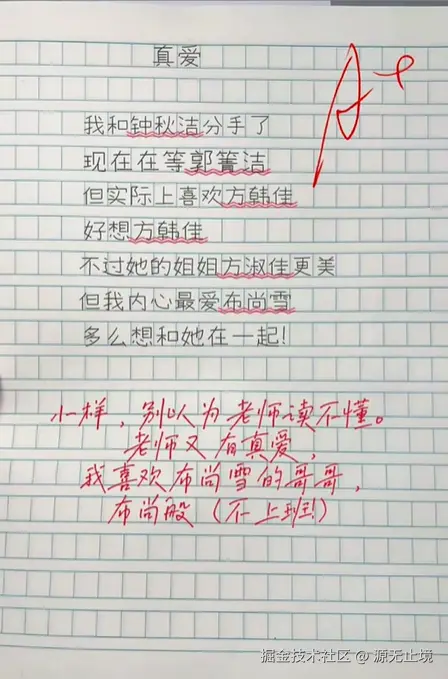 真爱
A+
我和钟秋洁分手了
现在在等郭箐洁
但实际上喜欢方韩佳
好想方韩佳
不过她的姐姐方淑佳更美
但我内心最爱布尚雪
多么想和她在一起!
小样，别以为老师读不懂。
老师又有真爱，
我喜欢布尚雪的哥哥，
布尚般（不上班!）
掘金技术社区 @ 源无止境